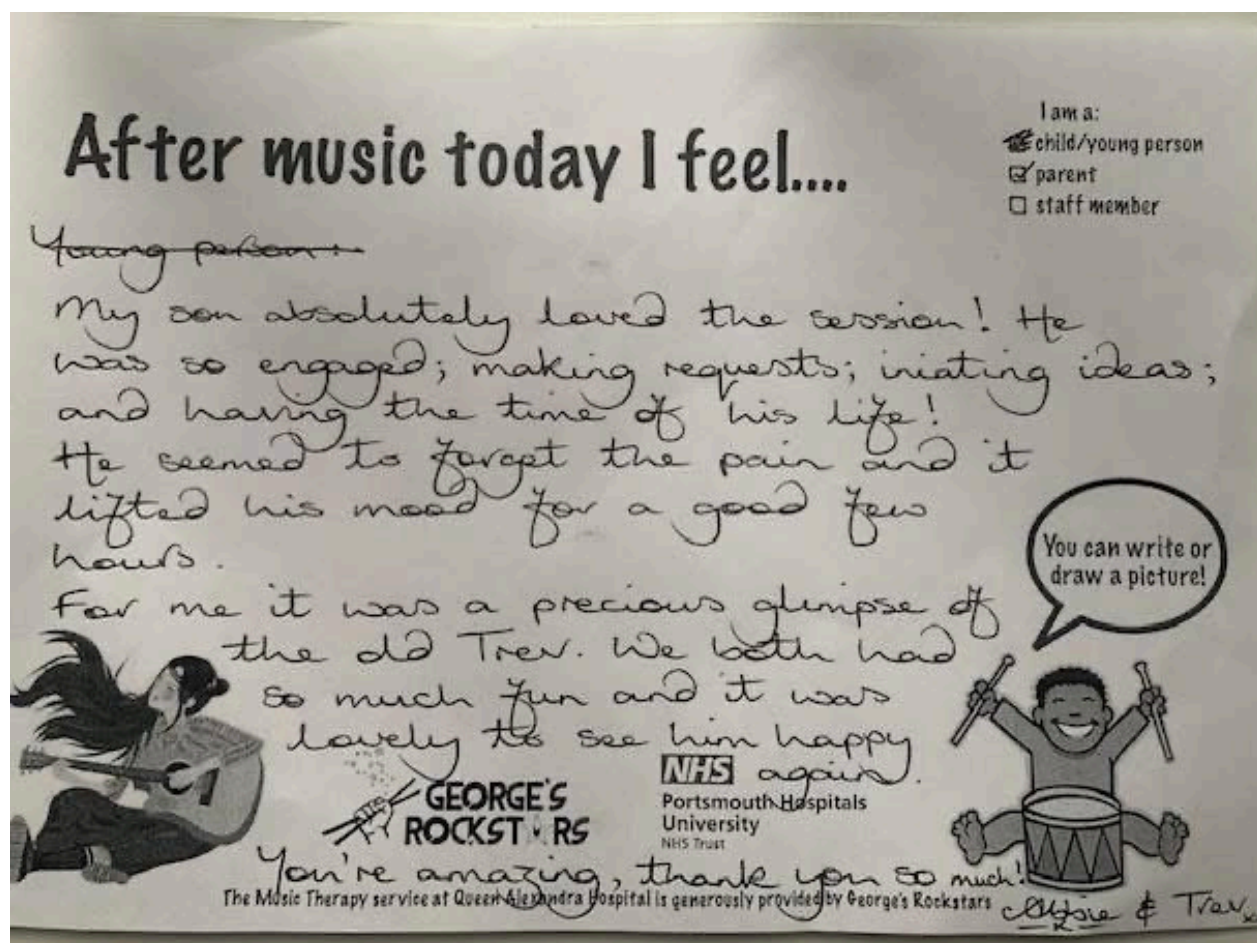 After music today I feel....
I am a:
child/young person
parent
staff member
Young person:
My son absolutely loved the session! He
was so engaged; making requests; iniating ideas;
and having the time of his life!
He seemed to forget the pain and it
lifted his mood for a good few
hours.
For me it was a precious glimpse of
the old Trev. We both had
so much fun and it was
lovely to see him happy
again.
You can write or
draw a picture!
GEORGE'S
ROCKSTARS
NHS
Portsmouth Hospitals
University
NHS Trust
You're amazing, thank you so much!
The Music Therapy service at Queen Alexandra Hospital is generously provided by George's Rockstars
& Trev x